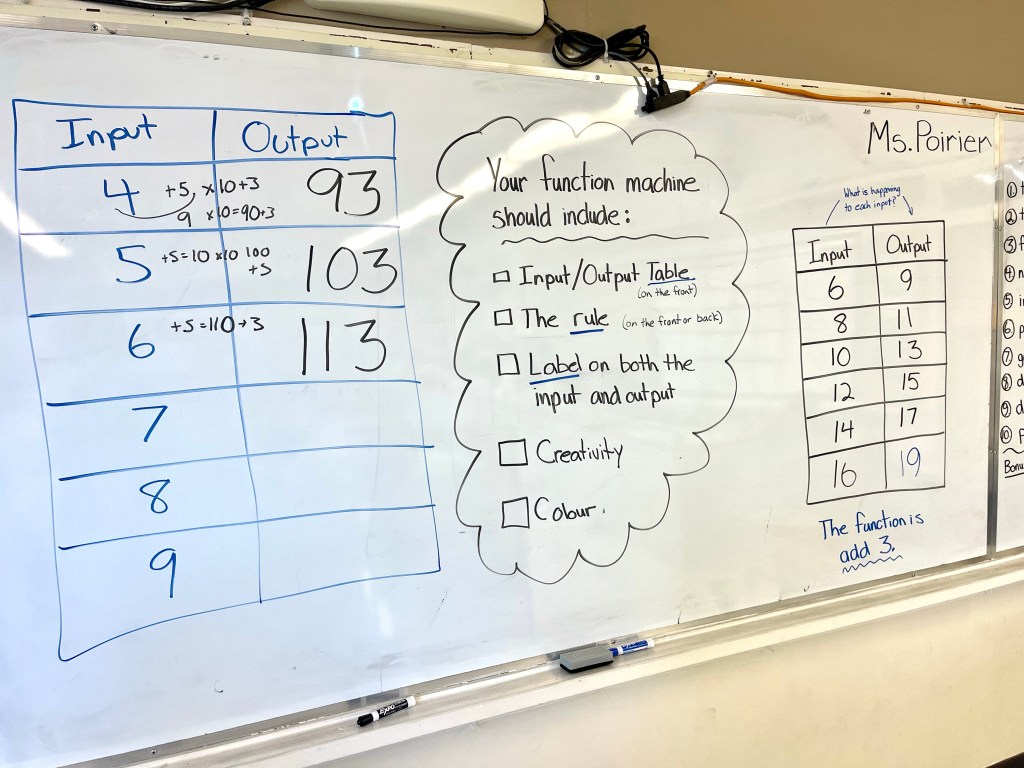 Input Output
4 +5, x10+3 93
9 x10=90+3
5 +5=10 x10 100 103
+5
6 +5=110+3 113
7
8
9
Your function machine
should include:
Input/Output Table
(on the front)
The rule (on the front or back)
Label on both the
input and output
Creativity
Colour.
Ms. Poirier
What is happening
to each input?
Input Output
6 9
8 11
10 13
12 15
14 17
16 19
The function is
add 3.
①
②
③
④
⑤
⑥
⑦
⑧
⑨
⑩
EXPO